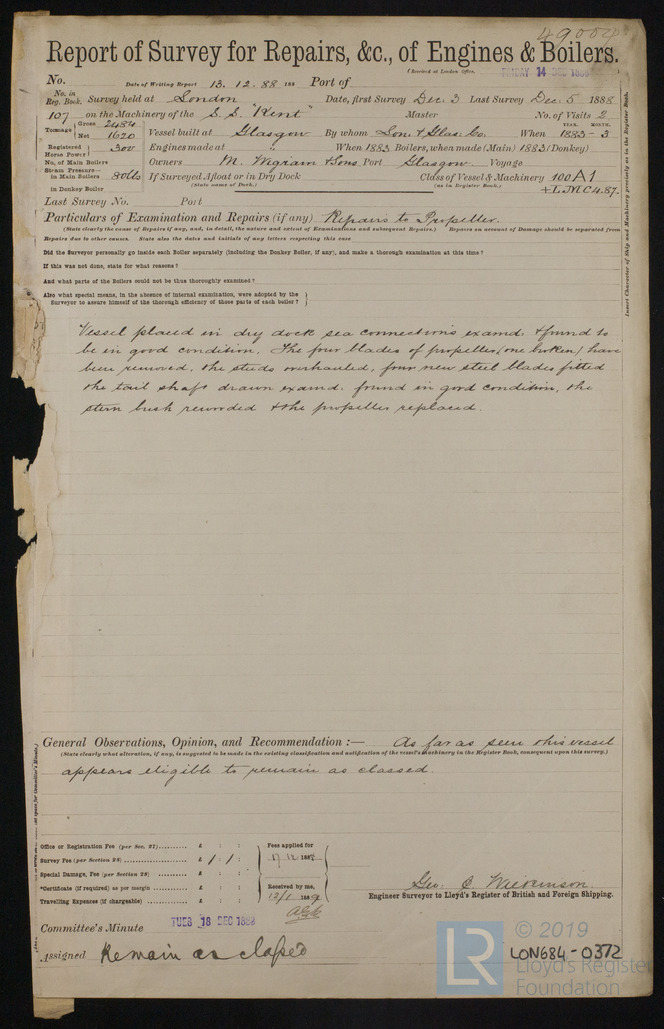 49004
Report of Survey for Repairs, &c., of Engines & Boilers.
(Received at London Office, FRIDAY 14 DEC 1888
No. Date of Writing Report 13.12.88 188 Port of
No. in Reg. Book. Survey held at London Date, first Survey Dec. 3 Last Survey Dec. 5 1888
107 on the Machinery of the S.S. "Kent" Master No. of Visits 2
Tonnage Gross 2484 Net 1620 Vessel built at Glasgow By whom Lon. & Glas. Co. When YEAR. MONTH. 1883-3
Registered Horse Power 300 Engines made at " When 1883 Boilers, when made (Main) 1883 (Donkey)
No. of Main Boilers Owners M. Wigram & Sons. Port Glasgow Voyage
Steam Pressure in Main Boilers 80lbs If Surveyed Afloat or in Dry Dock Class of Vessel & Machinery 100A1
in Donkey Boiler (State name of Dock.) (as in Register Book.) +LMC4.87.
Last Survey No. Port
Particulars of Examination and Repairs (if any) Repairs to Propeller.
(State clearly the cause of Repairs if any, and, in detail, the nature and extent of Examinations and subsequent Repairs.) Repairs on account of Damage should be separated from
Repairs due to other causes. State also the dates and initials of any letters respecting this case
Did the Surveyor personally go inside each Boiler separately (including the Donkey Boiler, if any), and make a thorough examination at this time?
If this was not done, state for what reasons?
And what parts of the Boilers could not be thus thoroughly examined?
Also what special means, in the absence of internal examination, were adopted by the
Surveyor to assure himself of the thorough efficiency of those parts of each boiler?
Insert Character of Ship and Machinery precisely as in the Register Book.
Vessel placed in dry dock sea connections examd. & found to
be in good condition. The four blades of propeller (one broken) have
been removed, the studs overhauled, four new steel blades fitted
the tail shaft drawn examd. found in good condition, the
stern bush rewooded & the propeller replaced.
General Observations, Opinion, and Recommendation:— As far as seen this vessel
(State clearly what alteration, if any, is suggested to be made in the existing classification and notification of the vessel's machinery in the Register Book, consequent upon this survey.)
appears eligible to remain as classed.
Office or Registration Fee (per Sec. 27) £ : :
Survey Fee (per Section 28) £ 1 : 1 :
Special Damage, Fee (per Section 28) £ : :
*Certificate (if required) as per margin £ : :
Travelling Expenses (if chargeable) £ : :
Fees applied for
17 12 1888
Received by me,
12/1 1889
Geo. C Wilkinson.
Engineer Surveyor to Lloyd's Register of British and Foreign Shipping.
Committee's Minute TUES 18 DEC 1888
Assigned Remain as classed
© 2019
LR
Lloyd's Register
Foundation
LON684-0372